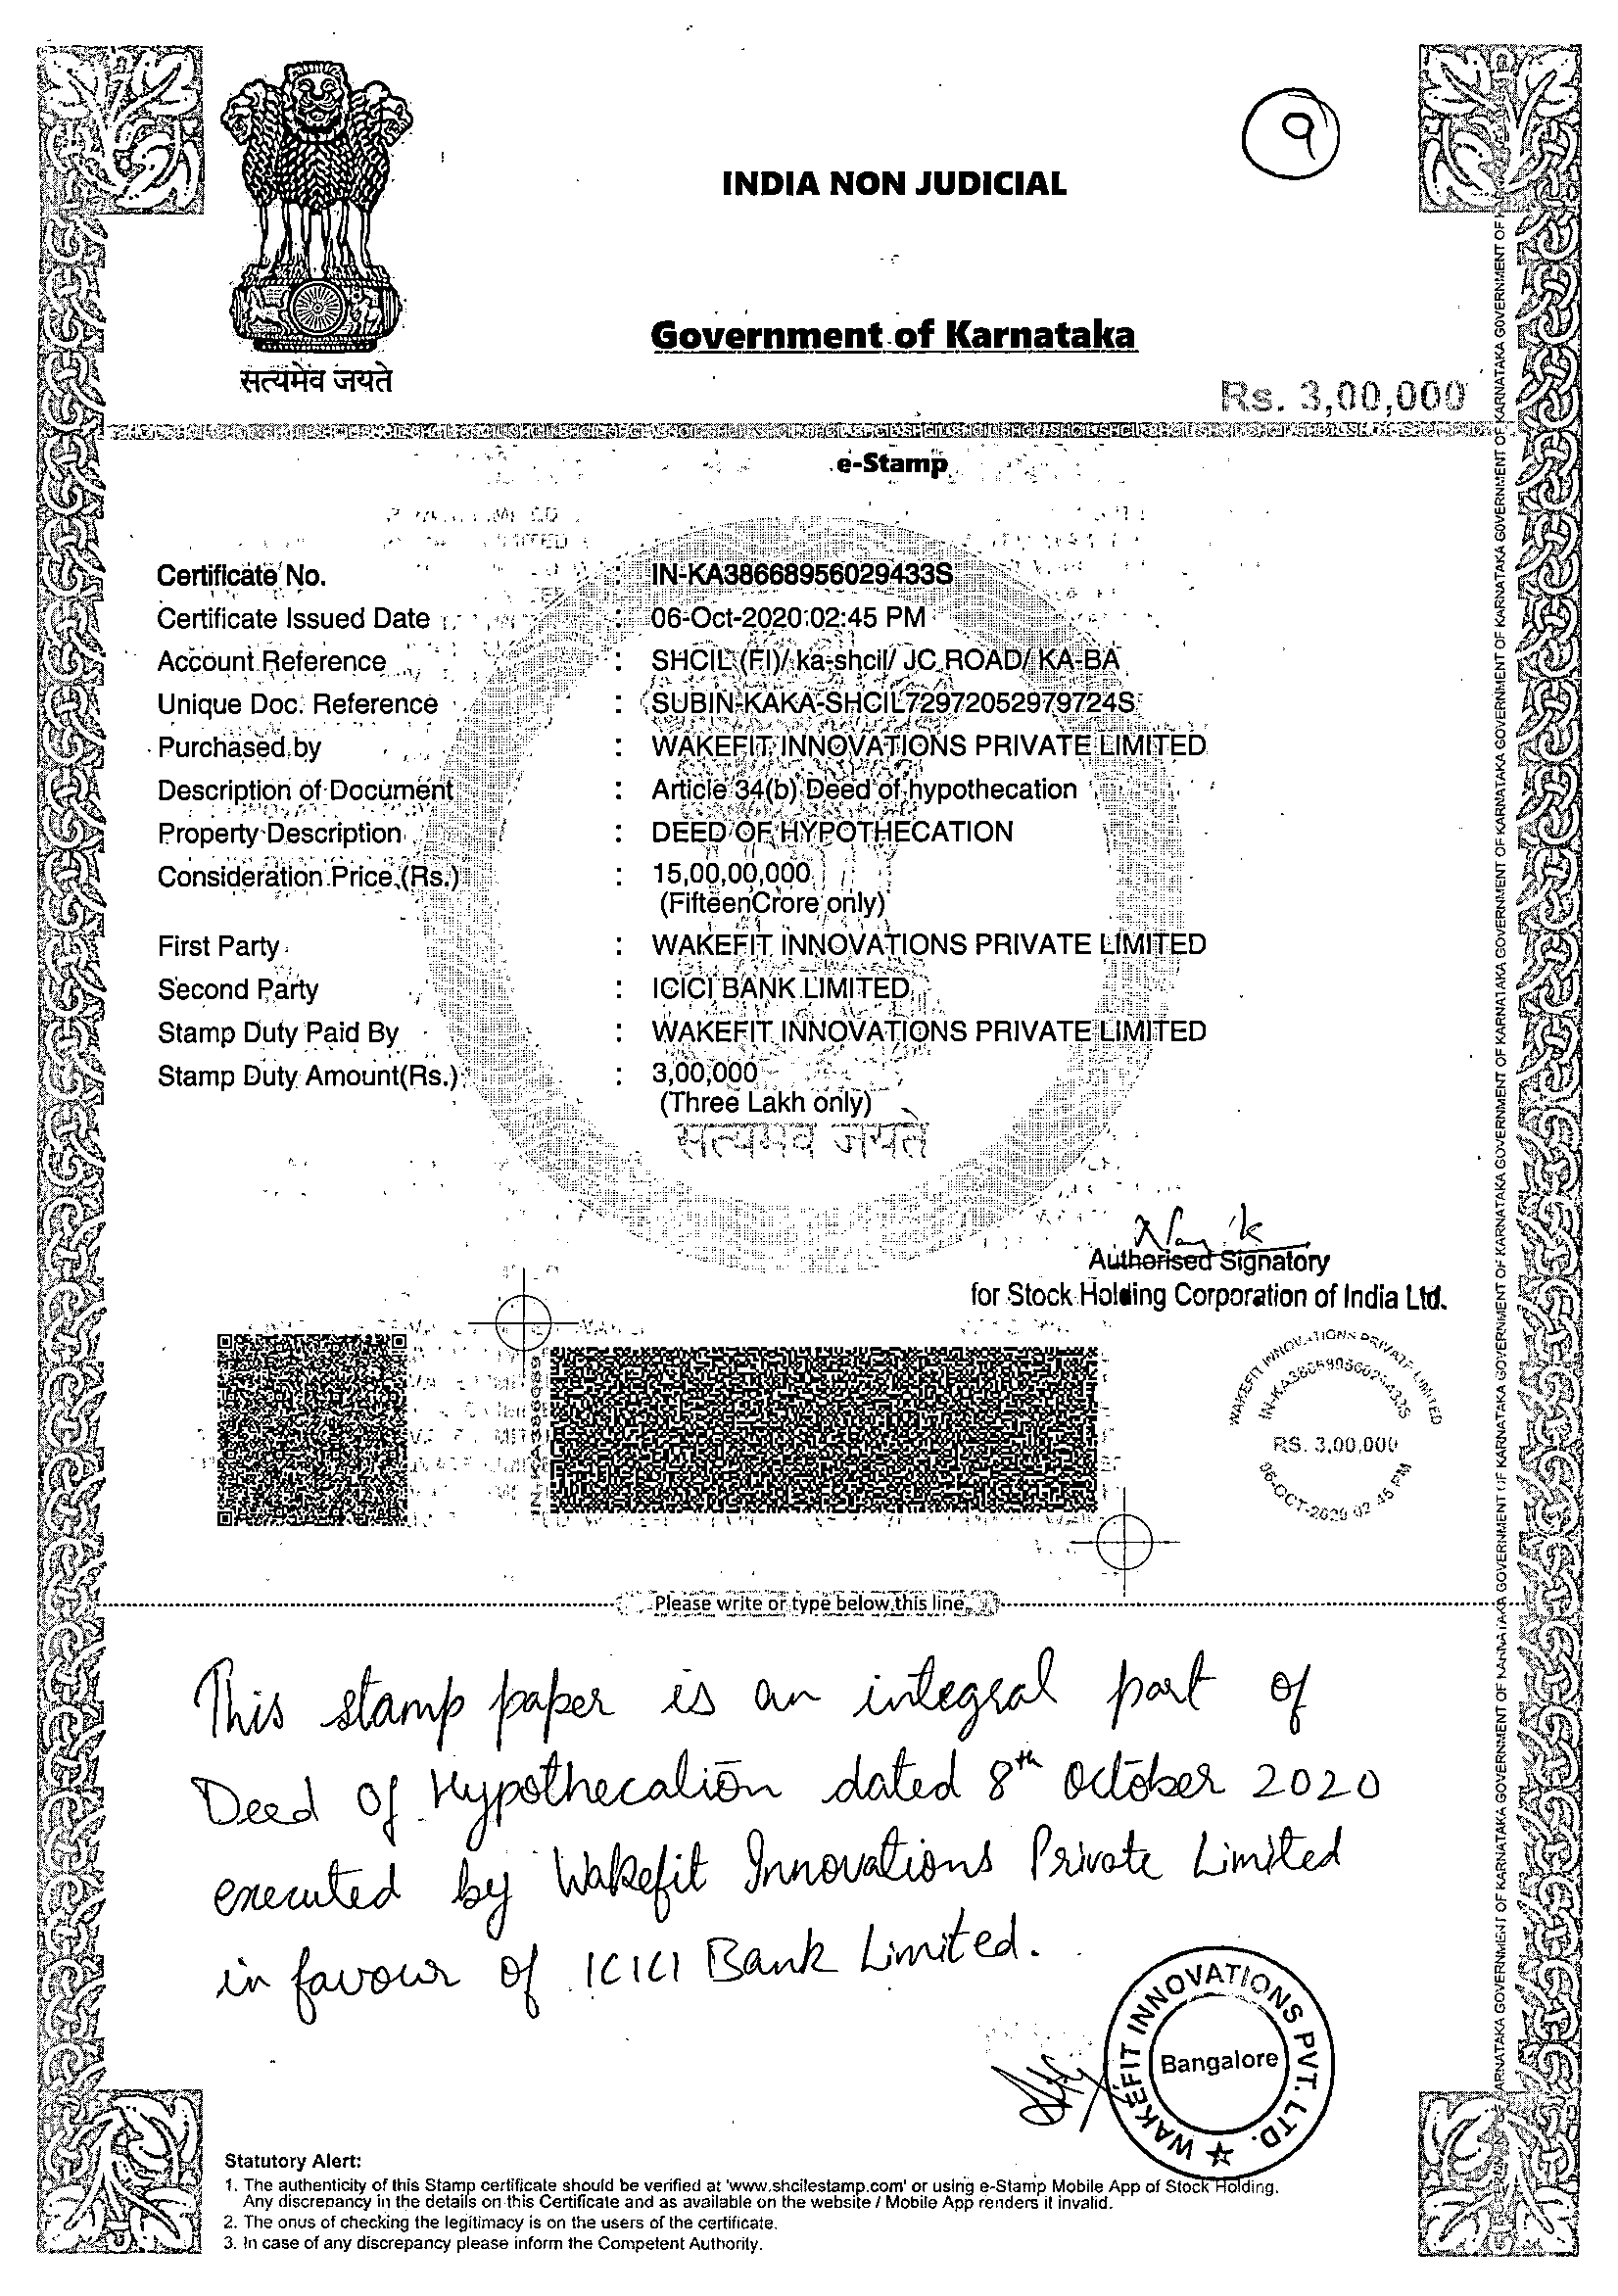 9
INDIA NON JUDICIAL
Government of Karnataka
सत्यमेव जयते
Rs. 3,00,000
e-Stamp
Certificate No. : IN-KA38668956029433S
Certificate Issued Date : 06-Oct-2020 02:45 PM
Account Reference : SHCIL (FI)/ ka-shcil/ JC ROAD/ KA-BA
Unique Doc. Reference : SUBIN-KAKA-SHCIL72972052979724S
Purchased by : WAKEFIT INNOVATIONS PRIVATE LIMITED
Description of Document : Article 34(b) Deed of hypothecation
Property Description : DEED OF HYPOTHECATION
Consideration Price (Rs.) : 15,00,00,000
(FifteenCrore only)
First Party : WAKEFIT INNOVATIONS PRIVATE LIMITED
Second Party : ICICI BANK LIMITED
Stamp Duty Paid By : WAKEFIT INNOVATIONS PRIVATE LIMITED
Stamp Duty Amount(Rs.) : 3,00,000
(Three Lakh only)
सत्यमेव जयते
Authorised Signatory
for Stock Holding Corporation of India Ltd.
WAKEFIT INNOVATIONS PRIVATE LIMITED
IN-KA38668956029433S
RS. 3,00,000
06-OCT-2020 02 45 PM
Please write or type below this line
This stamp paper is an integral part of
Deed of Hypothecation dated 8th October 2020
executed by Wakefit Innovations Private Limited
in favour of ICICI Bank Limited.
WAKEFIT INNOVATIONS PVT. LTD.
Bangalore
Statutory Alert:
1. The authenticity of this Stamp certificate should be verified at 'www.shcilestamp.com' or using e-Stamp Mobile App of Stock Holding.
Any discrepancy in the details on this Certificate and as available on the website / Mobile App renders it invalid.
2. The onus of checking the legitimacy is on the users of the certificate.
3. In case of any discrepancy please inform the Competent Authority.